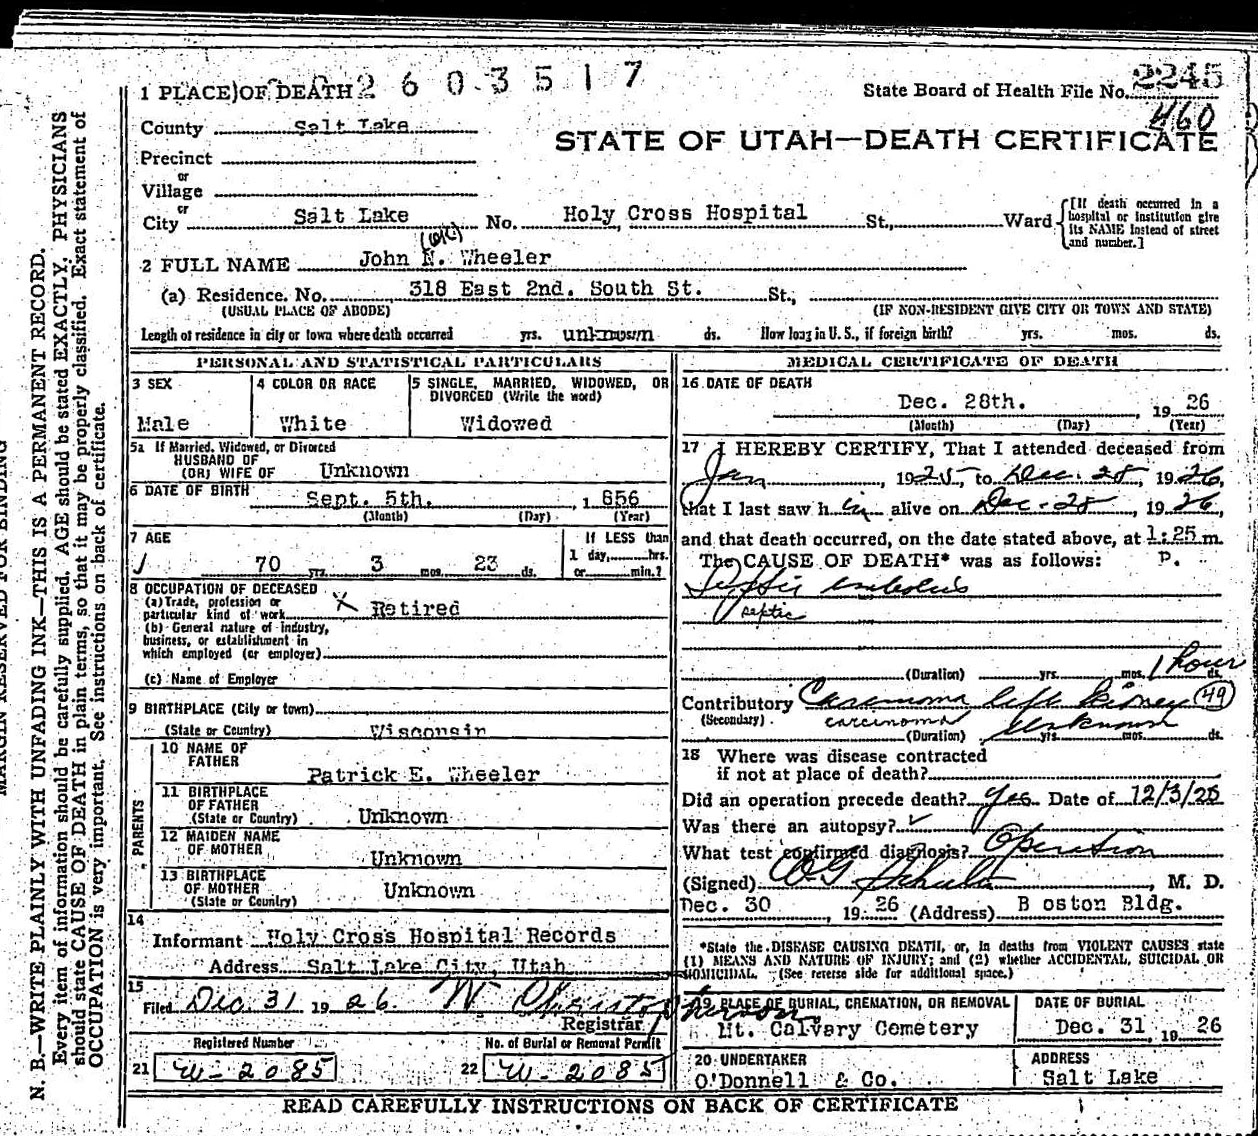 1 PLACE OF DEATH 2603517
State Board of Health File No. 2245
460
County Salt Lake
STATE OF UTAH—DEATH CERTIFICATE
Precinct
or
Village
or
City Salt Lake No. Holy Cross Hospital St., Ward [If death occurred in a hospital or institution give its NAME instead of street and number.]
(OK)
2 FULL NAME John N. Wheeler
(a) Residence. No. 318 East 2nd. South St. St.,
(USUAL PLACE OF ABODE) (IF NON-RESIDENT GIVE CITY OR TOWN AND STATE)
Length of residence in city or town where death occurred yrs. unknown ds. How long in U. S., if foreign birth? yrs. mos. ds.
PERSONAL AND STATISTICAL PARTICULARS
3 SEX
Male
4 COLOR OR RACE
White
5 SINGLE, MARRIED, WIDOWED, OR
DIVORCED (Write the word)
Widowed
5a If Married, Widowed, or Divorced
HUSBAND OF
(OR) WIFE OF Unknown
6 DATE OF BIRTH
Sept. 5th. , 1 856
(Month) (Day) (Year)
7 AGE
70 yrs. 3 mos. 23 ds.
If LESS than
1 day, hrs.
or min.?
8 OCCUPATION OF DECEASED
(a) Trade, profession or
particular kind of work X Retired
(b) General nature of industry,
business, or establishment in
which employed (or employer)
(c) Name of Employer
9 BIRTHPLACE (City or town)
(State or Country) Wisconsin
PARENTS
10 NAME OF
FATHER
Patrick E. Wheeler
11 BIRTHPLACE
OF FATHER
(State or Country) Unknown
12 MAIDEN NAME
OF MOTHER
Unknown
13 BIRTHPLACE
OF MOTHER Unknown
(State or Country)
14
Informant Holy Cross Hospital Records
Address Salt Lake City, Utah
15
Filed Dec. 31 1926. W. Christopherson
Registrar
Registered Number
21 W-2085
No. of Burial or Removal Permit
22 W-2085
MEDICAL CERTIFICATE OF DEATH
16 DATE OF DEATH
Dec. 28th. , 19 26
(Month) (Day) (Year)
17 I HEREBY CERTIFY, That I attended deceased from
Jan , 1925, to Dec. 28, 1926,
that I last saw h im alive on Dec-28, 1926,
and that death occurred, on the date stated above, at 1:25 m.
The CAUSE OF DEATH* was as follows: P.
Septic embolus
septic
(Duration) yrs. mos. 1 hour ds.
Contributory Carcinoma left Kidney 49
(Secondary) carcinoma
(Duration) Unknown yrs. mos. ds.
18 Where was disease contracted
if not at place of death?
Did an operation precede death? Yes Date of 12/3/25
Was there an autopsy? ✓
What test confirmed diagnosis? Operation
(Signed) , M. D.
Dec. 30 , 19 26 (Address) Boston Bldg.
*State the DISEASE CAUSING DEATH, or, in deaths from VIOLENT CAUSES state
(1) MEANS AND NATURE OF INJURY; and (2) whether ACCIDENTAL, SUICIDAL OR
HOMICIDAL. (See reverse side for additional space.)
19 PLACE OF BURIAL, CREMATION, OR REMOVAL
Mt. Calvary Cemetery
DATE OF BURIAL
Dec. 31 19 26
20 UNDERTAKER
O'Donnell & Co.
ADDRESS
Salt Lake
READ CAREFULLY INSTRUCTIONS ON BACK OF CERTIFICATE
MARGIN RESERVED FOR BINDING
N. B.—WRITE PLAINLY WITH UNFADING INK—THIS IS A PERMANENT RECORD.
Every item of information should be carefully supplied. AGE should be stated EXACTLY. PHYSICIANS
should state CAUSE OF DEATH in plain terms, so that it may be properly classified. Exact statement of
OCCUPATION is very important. See instructions on back of certificate.